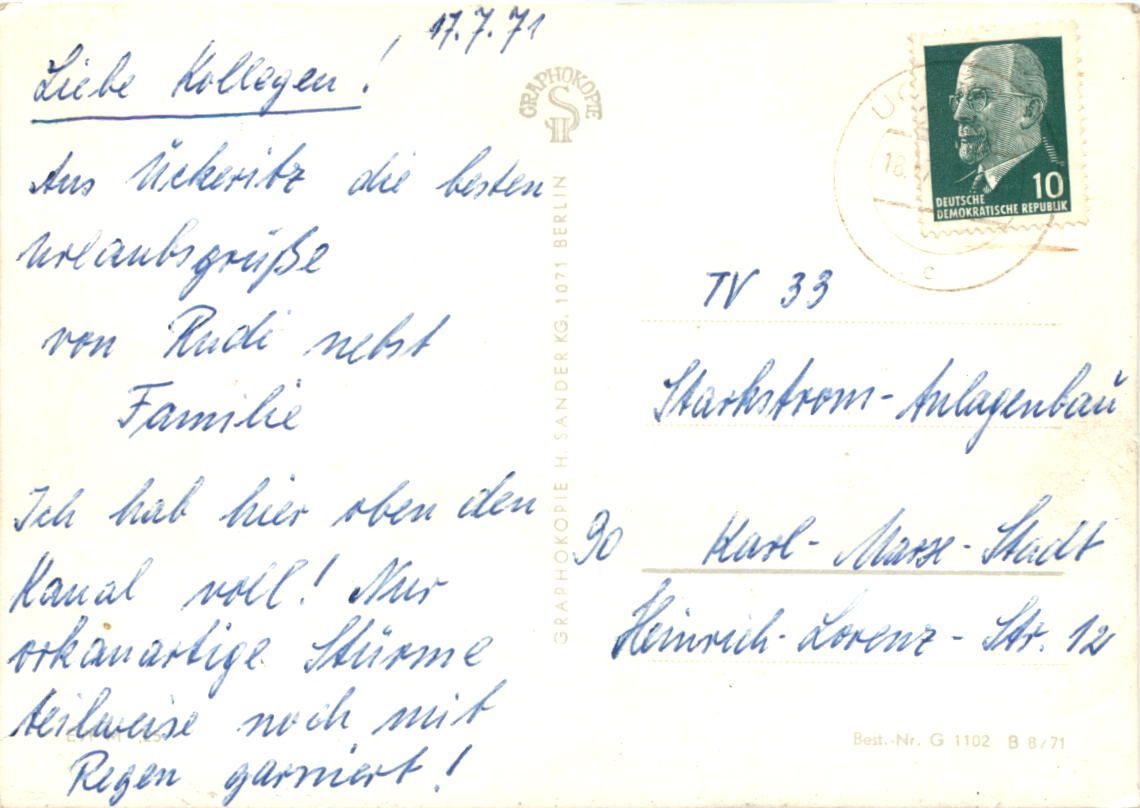 17.7.71
Liebe Kollegen!
Aus Ückeritz die besten
Urlaubsgrüße
von Rudi nebst
Familie
Ich hab hier oben den
Kanal voll! Nur
orkanartige Stürme
teilweise noch mit
Regen garniert!
GRAPHOKOPIE
GRAPHOKOPIE H. SANDER KG, 1071 BERLIN
10
DEUTSCHE
DEMOKRATISCHE REPUBLIK
18.
c
TV 33
Starkstrom-Anlagenbau
90 Karl-Marx-Stadt
Heinrich-Lorenz-Str. 12
Best.-Nr. G 1102 B 8/71